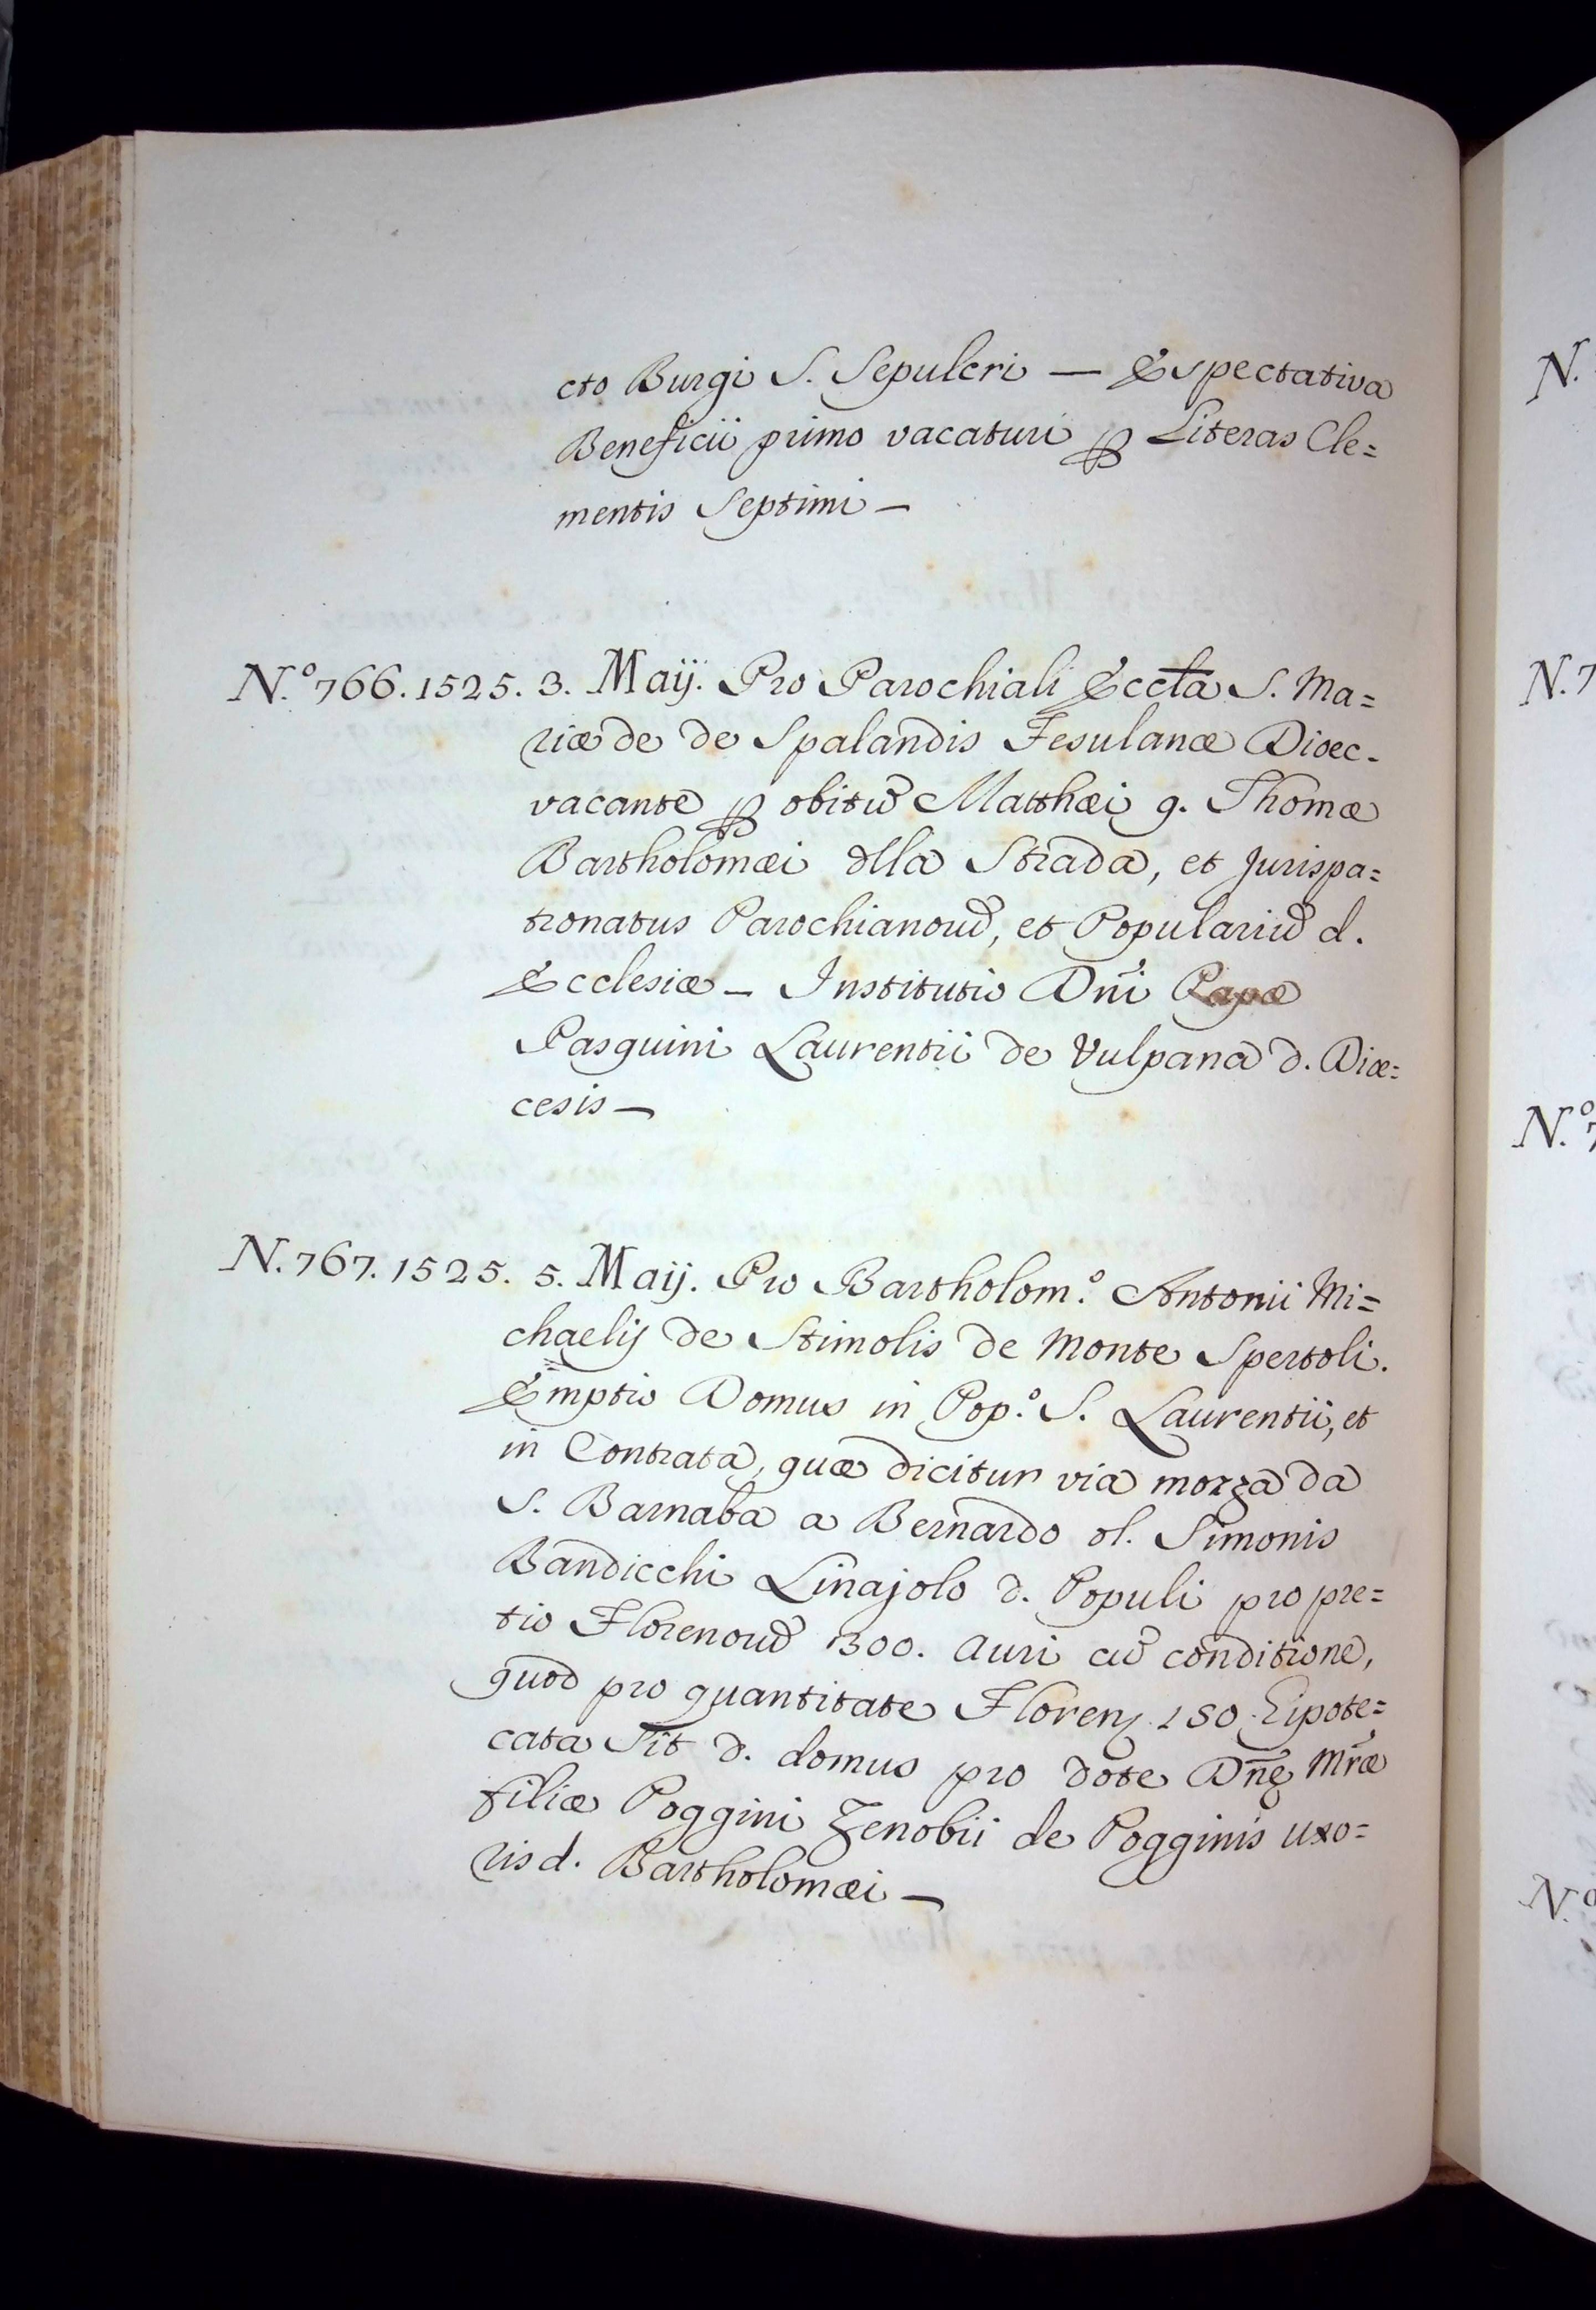 cto Burgi S. Sepulcri — Espectativa
Beneficii primo vacaturi ꝑ Literas Cle=
mentis Septimi —
N.º 766. 1525. 3. Maij. Pro Parochiali Eccła S. Ma=
riæ de de Spalandis Fesulanæ Dioec.
vacante ꝑ obitũ Matthæi q. Thomæ
Bartholomæi dlla Strada, et Jurispa=
tronatus Parochianorũ, et Populariũ d.
Ecclesiæ — Institutio Dñi Papæ
Pasquini Laurentii de Vulpana d. Diœ=
cesis —
N. 767. 1525. 5. Maij. Pro Bartholom.º Antonii Mi=
chaelis de Stimolis de Monte Spertoli.
Emptio Domus in Pop.º S. Laurentii, et
in Contrata, quæ dicitur via mozza da
S. Barnaba a Bernardo ol. Simonis
Bandicchi Linajolo d. Populi pro pre=
tio Florenorũ 300. Auri cũ conditione,
quod pro quantitate Floren. 150. Eipote=
cata Sit d. domus pro dote Dñę Mr̃æ
filiæ Poggini Zenobii de Pogginis uxo=
ris d. Bartholomæi —
N.
N. 7
N.º 7
N.º